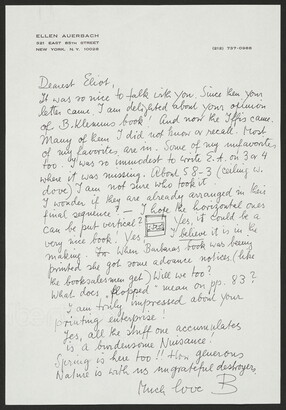 ELLEN AUERBACH
331 EAST 85TH STREET
NEW YORK, N.Y. 10028
(212) 737-0988
Dearest Eliot,
It was so nice to talk with you. Since then your
letter came. I am delighted about your opinion
of B. Klemms book! And now the came.
Many of them I did not know or recall. Most
of my favorites are in. Some of my unfavorites
too. I was so immodest to write E.A. on 3 or 4
where it was missing. About 58-3 (ceiling w.
dove) I am not sure who took it.
I wonder if they are already arranged in their
final sequence? — I hope the horizontal ones
can be put vertical? Yes, it could be a
very nice book! Yes, I believe it is in the
making. When Barbaras book was being
printed she got some advance notices (like
the booksalesmen get) Will we too?
What does "flopped" mean on pp. 83?
I am truly impressed about your
printing enterprise!
Yes, all the stuff one accumulates
is a burdensome Nuisance!
Spring is here too!! How generous
Nature is with us ungrateful destroyers
Much love B